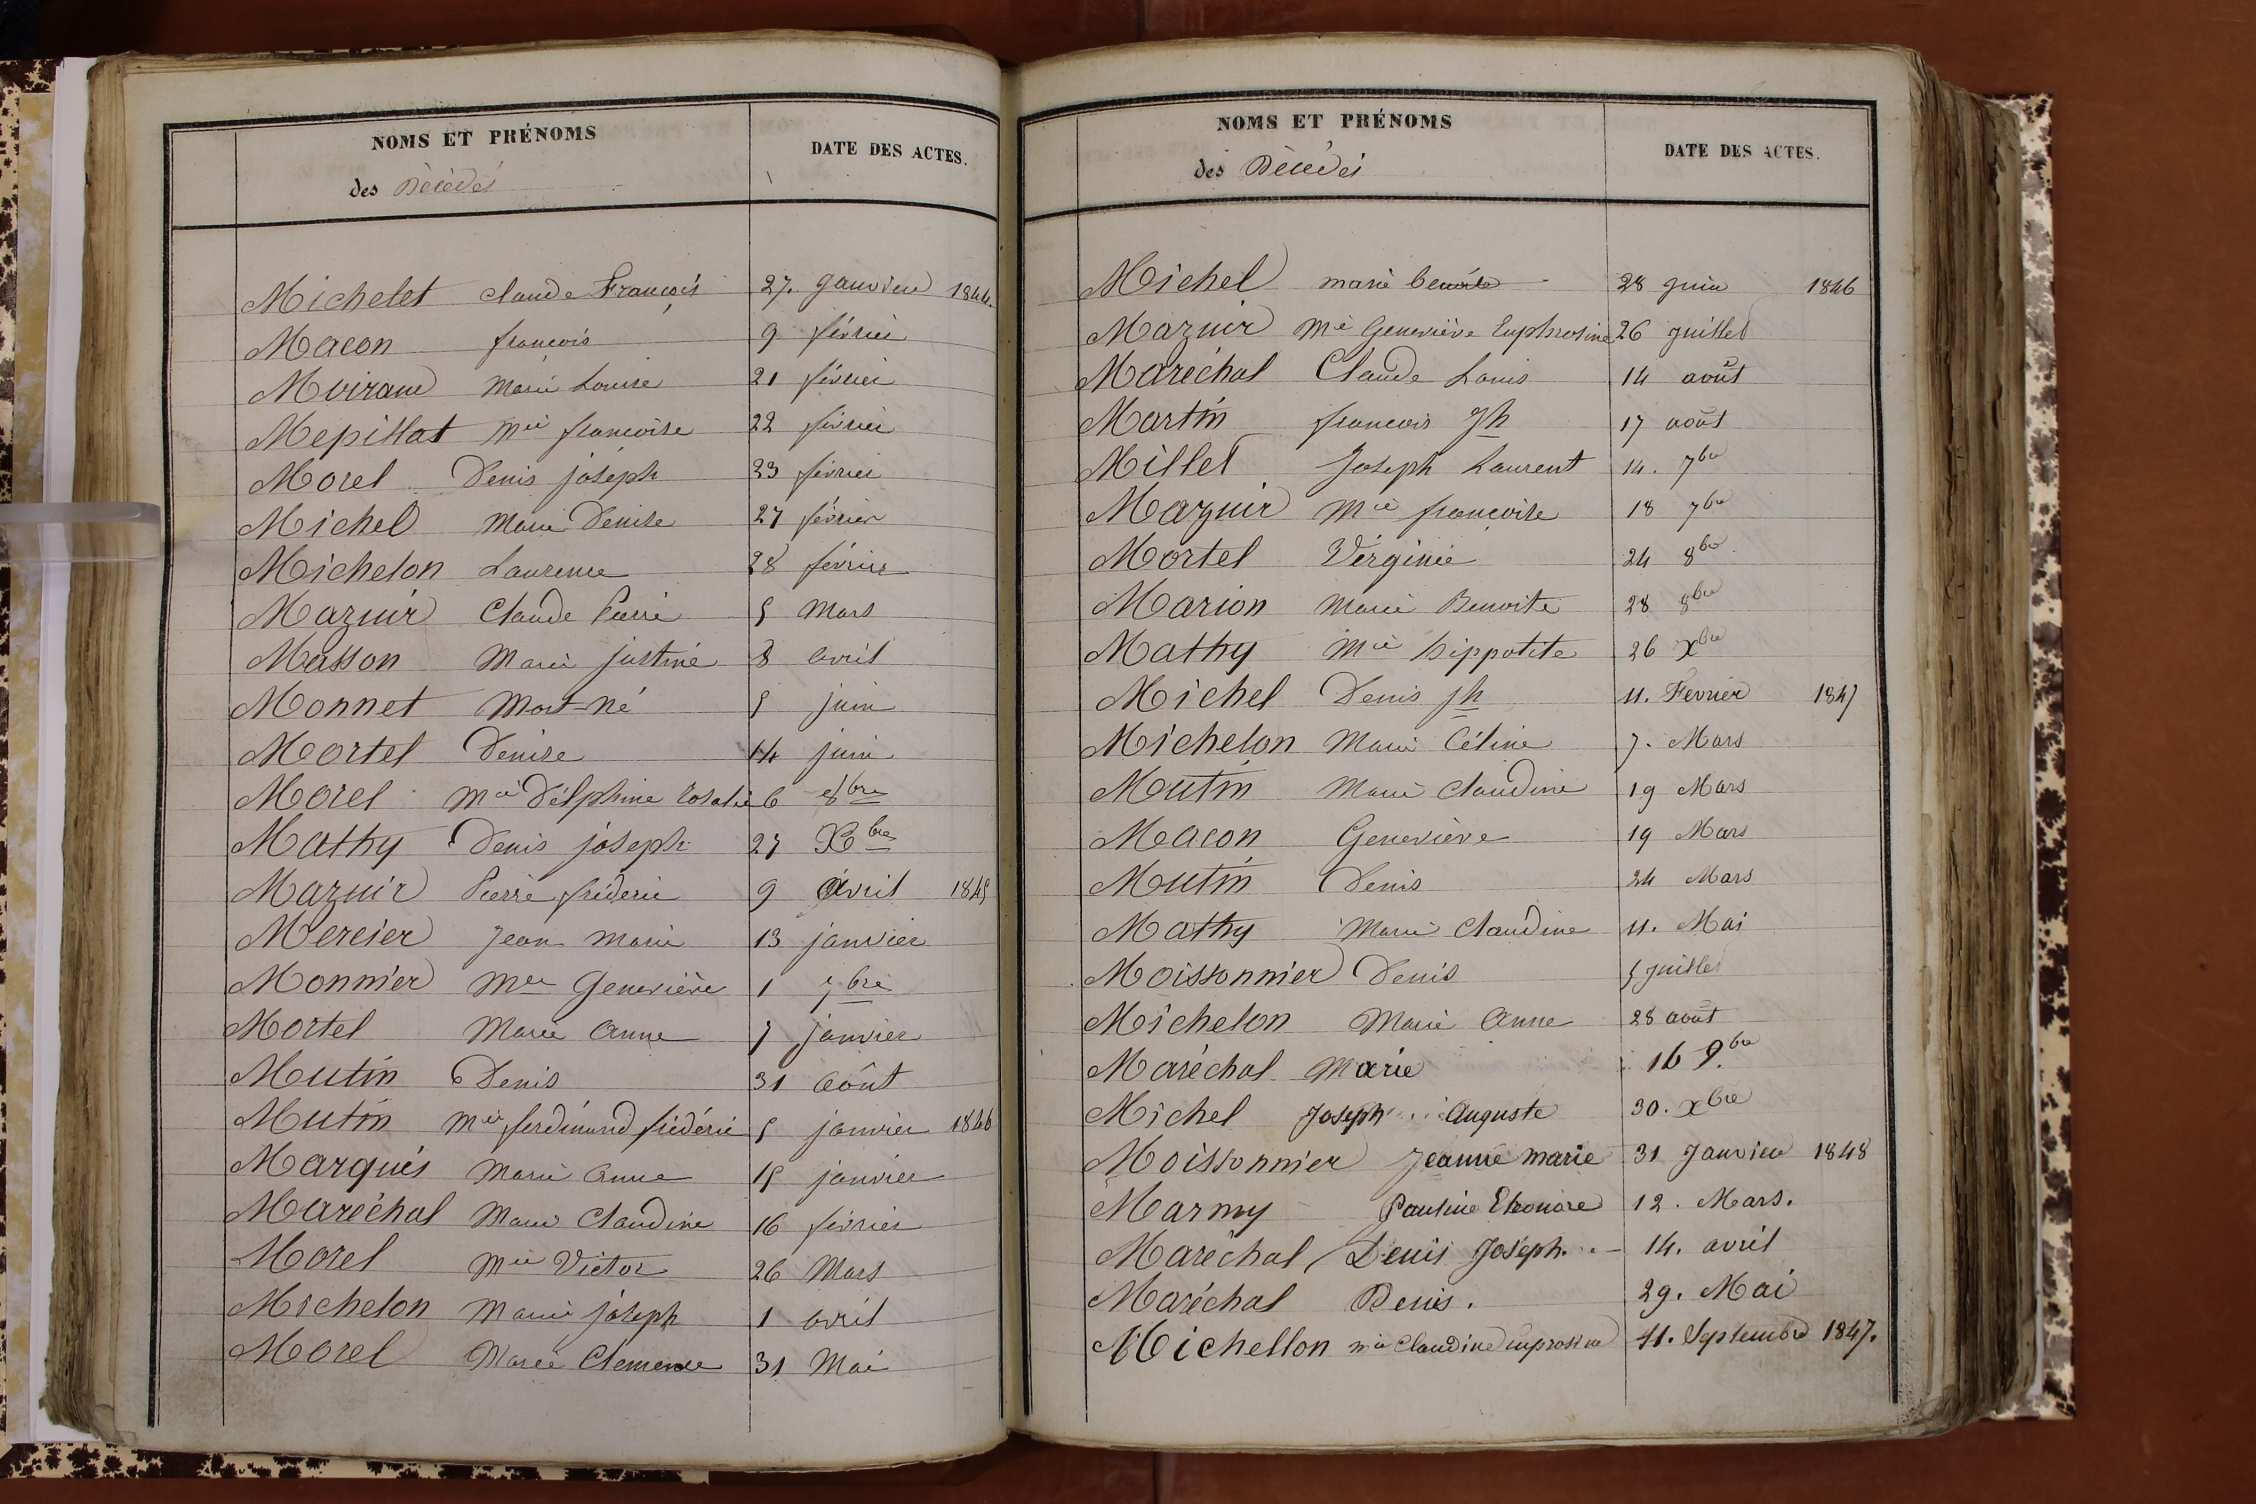 NOMS ET PRÉNOMS DATE DES ACTES.
des Décédés
Michelet Claude François 27. Janvier 1844.
Macon françois 9 février
Moiraud Marie Louise 21 février
Mepillat Mie françoise 22 février
Morel Denis joseph 23 février
Michel Marie Denise 27 février
Michelon Laurence 28 février
Mazuir Claude Pierre 5 Mars
Masson Marie justine 8 avril
Monnet Mort-né 5 juin
Mortel Denise 14 juin
Morel Mie Délphine Rosalie 6 8bre
Mathy Denis joseph 27 Xbre
Mazuir Pierre fréderic 9 Avril 1845
Mercier Jean Marie 13 janvier
Monnier Mie Geneviève 1 7bre
Mortel Marie Anne 7 janvier
Mutin Denis 31 Août
Mutin Mie ferdinand frédéric 5 janvier 1846
Marquis Marie Anne 15 janvier
Maréchal Marie Claudine 16 février
Morel Mie Victor 26 Mars
Michelon Marie joseph 1 avril
Morel Marie Clemence 31 Mai
NOMS ET PRÉNOMS DATE DES ACTES.
des Décédés
Michel marie benoite 28 juin 1846
Mazuir Mie Geneviève Euphrosine 26 juillet
Maréchal Claude Louis 14 août
Martin françois Jh 17 août
Millet Joseph Laurent 14. 7bre
Mazuir Mie françoise 18 7bre
Mortel Virginie 24 8bre
Marion Marie Benoite 28 8bre
Mathy Mie hippolite 26 Xbre
Michel Denis jh 11. Fevrier 1847
Michelon Marie Céline 7. Mars
Mutin Marie Claudine 19 Mars
Macon Geneviève 19 Mars
Mutin Denis 24 Mars
Mathy Marie Claudine 11. Mai
Moissonnier Denis 5 juillet
Michelon Marie Anne 28 août
Maréchal Marie 16 9.bre
Michel Joseph Auguste 30. Xbre
Moissonnier Jeanne marie 31 Janvier 1848
Marmy Pauline Eleonore 12. Mars.
Maréchal Denis Joseph. 14. avril
Maréchal Denis. 29. Mai
Michellon mie Claudine euprosine 11. Septembre 1847.